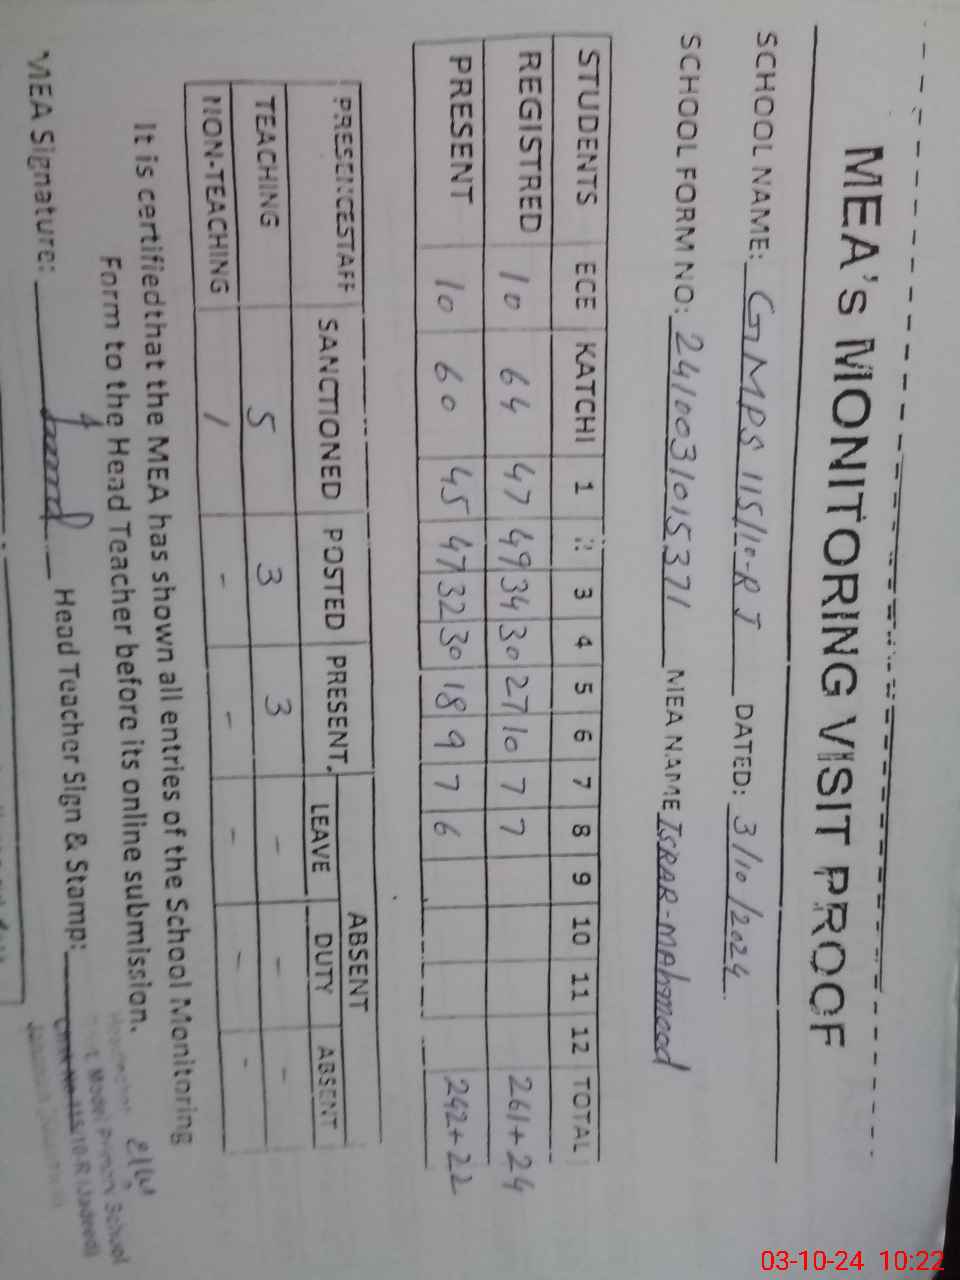 MEA's MONITORING VISIT PROOF
SCHOOL NAME: GMPS 115/10-R J DATED: 3/10/2024
SCHOOL FORM NO: 2410031015371 MEA NAME ISRAR-MAhmood
STUDENTS ECE KATCHI 1 2 3 4 5 6 7 8 9 10 11 12 TOTAL
REGISTRED 10 64 47 49 34 30 27 10 7 7 261+24
PRESENT 10 60 45 47 32 30 18 9 7 6 242+22
PRESENCESTAFF SANCTIONED POSTED PRESENT ABSENT
LEAVE DUTY ABSENT
TEACHING 5 3 3 - - -
NON-TEACHING 1 - - - - -
It is certifiedthat the MEA has shown all entries of the School Monitoring
Form to the Head Teacher before its online submission.
MEA Signature: Head Teacher Sign & Stamp:
Model Primary School
Chak No 115/10-R (Jadeed)
03-10-24 10:22